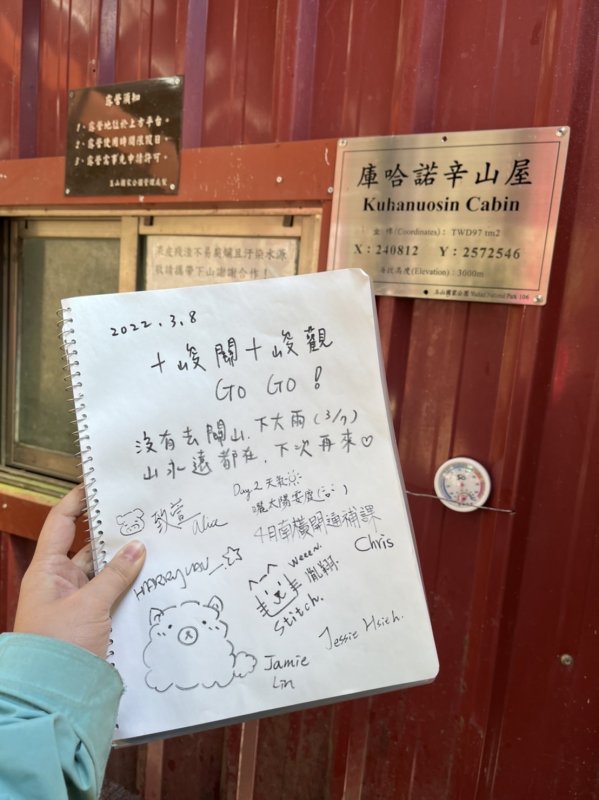 露營須知
1、露營地位於上方平台。
2、露營使用時間限假日。
3、露營需事先申請許可。
玉山國家公園管理處製
庫哈諾辛山屋
Kuhanuosin Cabin
坐標(Coordinates)： TWD97 tm2
X：240812 Y：2572546
海拔高度(Elevation)：3000m
玉山國家公園 Yushan National Park·106
果皮殘渣不易腐爛且汙染水源
敬請攜帶下山謝謝合作！
2022.3.8
十峻關十峻觀
GO GO！
沒有去關山，下大雨(3/7)
山永遠都在，下次再來♡
Day2 天氣
曬太陽
4月南橫開通補課
致萱 Alice
Chris
HARRYJUAN
weeen.
胤翔.
Stitch.
Jessie Hsieh.
Jamie
Lin